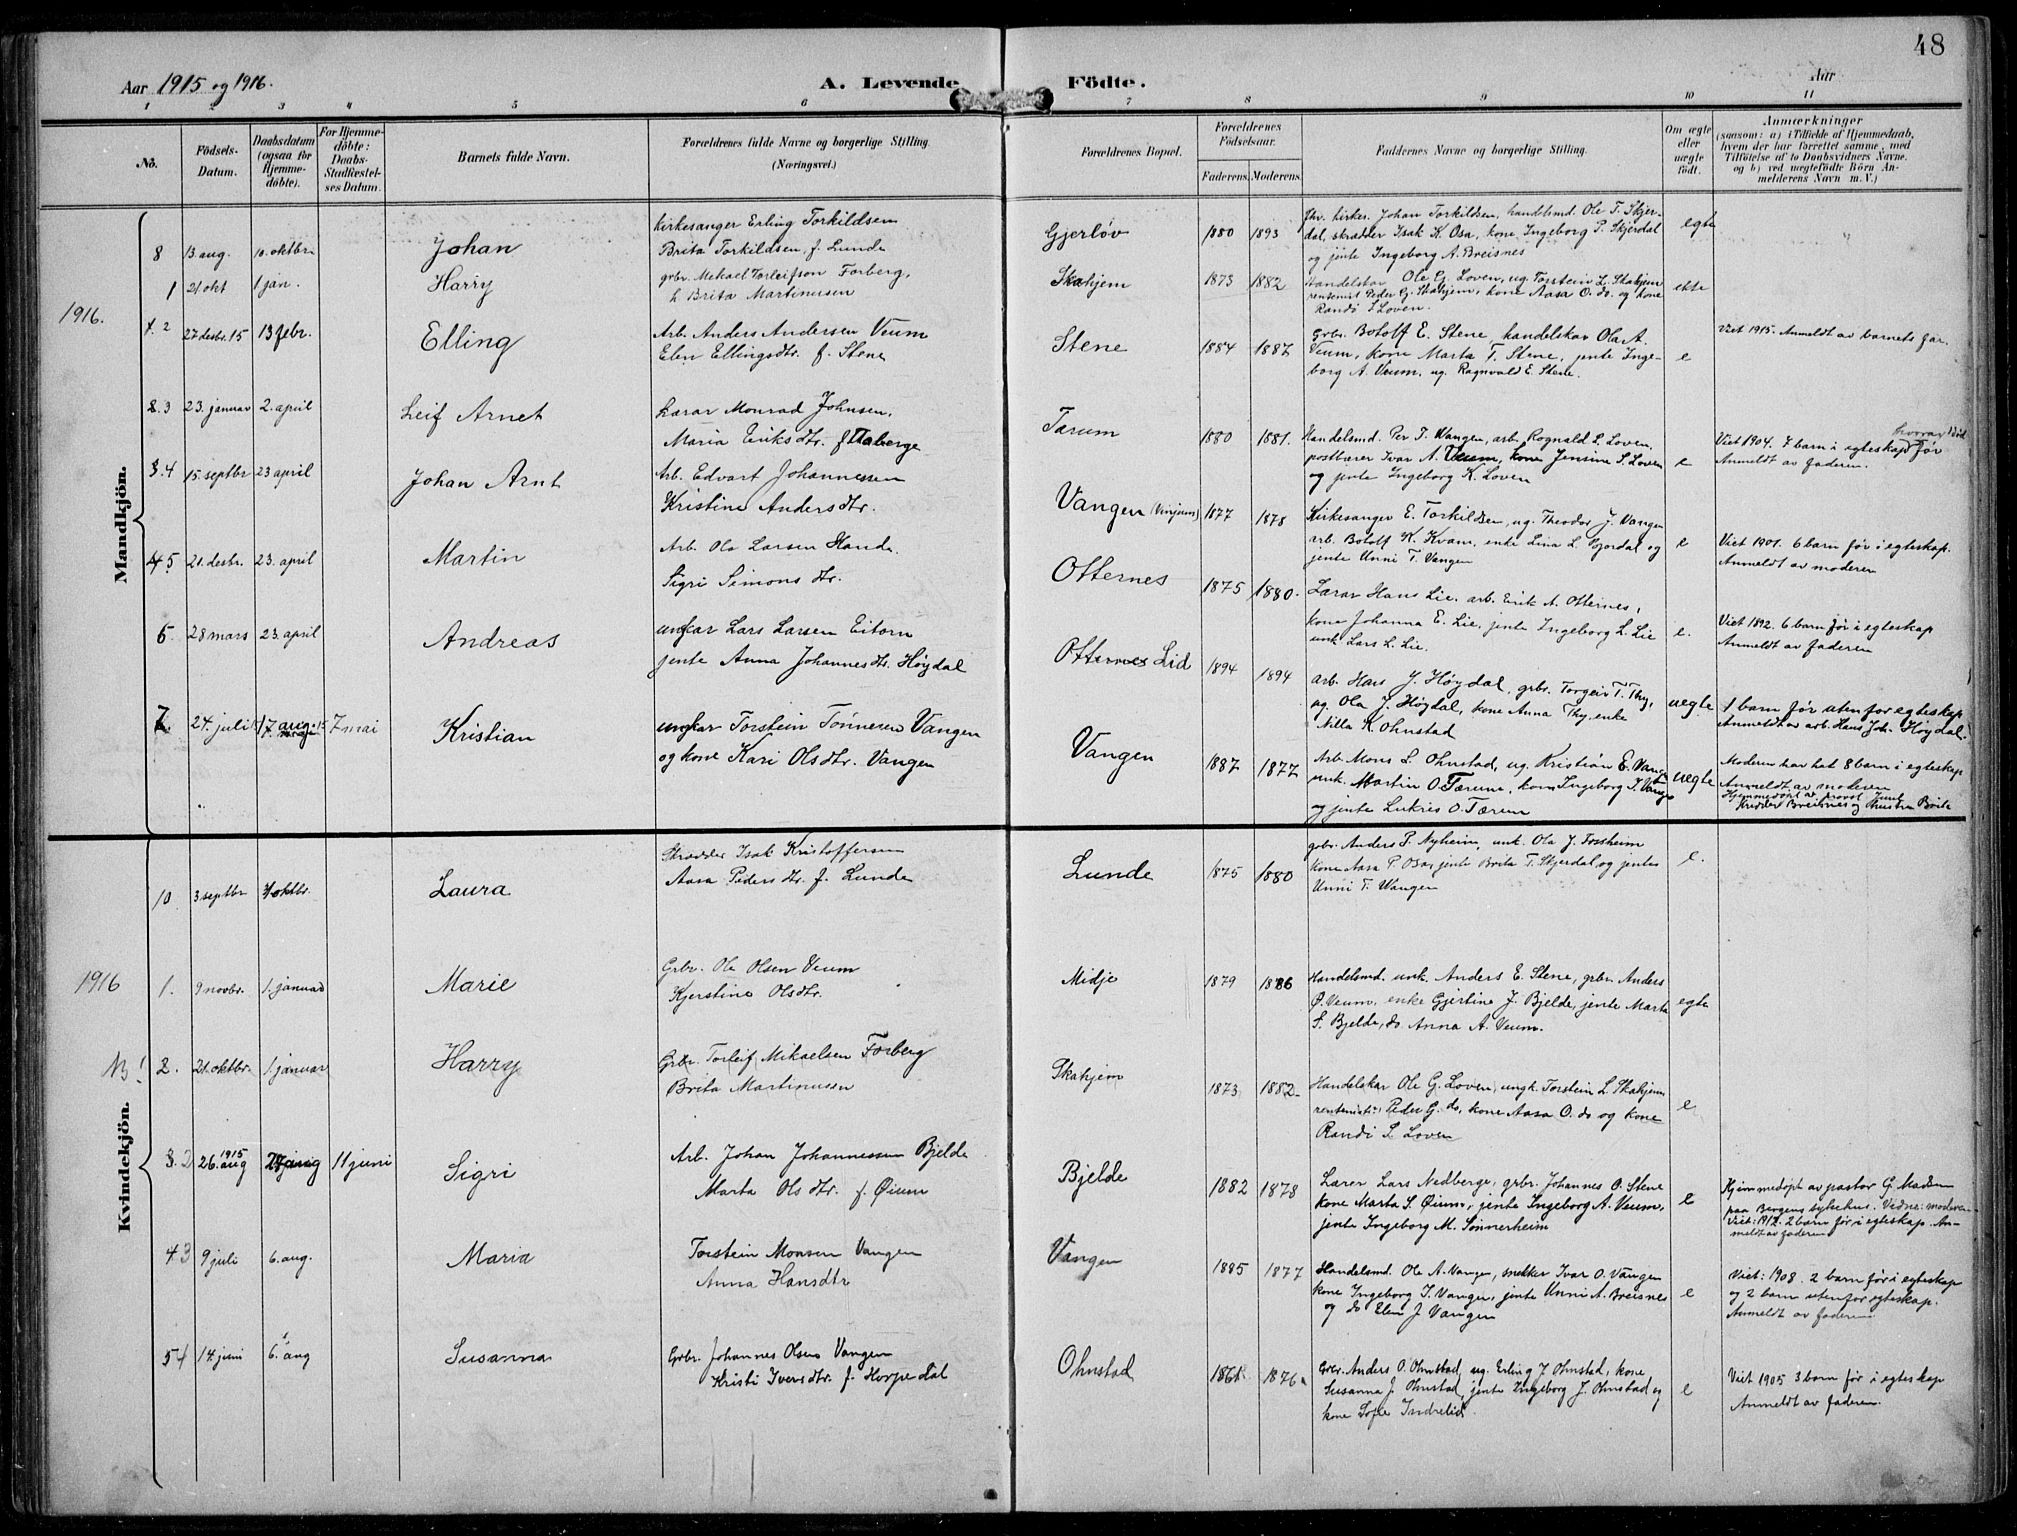 48
Aar 1915 og 1916.
A. Levende Födte.
Aar
1 2 3 4 5 6 7 8 9 10 11
Nô.
Födsels-
Datum.
Daabsdatum
(ogsaa for
Hjemme-
döbte).
For Hjemme-
döbte:
Daabs-
Stadfæstel-
ses Datum.
Barnets fulde Navn.
Forældrenes fulde Navne og borgerlige Stilling.
(Næringsvei.)
Forældrenes Bopæl.
Forældrenes
Födselsaar.
Faderens. Moderens.
Faddernes Navne og borgerlige Stilling.
Om ægte
eller
uægte
födt.
Anmærkninger
(saasom: a) i Tilfælde af Hjemmedaab,
hvem der har forrettet samme, med
Tilföielse af to Daabsvidners Navne.
og b) ved uægtefödte Börn An-
melderens Navn m. V.)
Mandkjön.
8 13 aug. 10. oktbr Johan
Kirkesanger Erling Torkildsen
Brita Torkildsen f. Lunde
Gjerløv 1880 1893
fhv. kirkes. Johan Torkildsen, handelsmd. Ole T. Skjer-
dal, skrædder Isak K. Osa, kone Ingeborg P. Skjerdal
og jente Ingeborg A. Breisnes
egte
1916.
1 21 okt 1 jan. Harry
grbr. Mekael Torleifson Forberg,
h Brita Martinusen
Skahjem 1873 1882
Handelskar Ole G. Loven, ug Torstein L. Skahjem
rentenist Peder G. Skahjem, kone Aasa O. do. og kone
Randi S Loven.
ekte
2 27 desbr. 15 13 febr. Elling
Arb. Anders Andersen Veum
Elen Ellingsdtr. f. Stene
Stene 1884 1887
Grbr. Botolf E. Stene handelskar Ola A.
Veum, kone Marta T. Stene, jente Inge-
borg A. Veum, ug. Ragnvald E. Stene.
e
Viet 1915. Anmeldt av barnets far.
3 23. januar 2. april Leif Arnet
Lærar Monrad Johnsen.
Maria Eriksdtr. f Aaberge
Tærum 1880 1881.
Handelsmd. Per T. Wangen, arb. Rognald L. Loven,
postbærer Ivar A. Veum, kone Jensine S. Loven
og jente Ingeborg K. Loven
e
Viet 1904. 7 barn i egteskap før
Anmeldt av faderen.
4 15. septbr 23 april Johan Arnt
Arb. Edvart Johannessen
Kristine Andersdtr.
Vangen (Vinjum) 1877 1878
Kirkesanger E. Torkildsen, ug. Theodor J. Vangen
arb. Botolf K. Kvam, enke Lina L. Gjordal og
jente Unni T. Vangen
e
Viet 1901. 6 barn før i egteskap.
Anmeldt av moderen
5 21. desbr. 23. april Martin
Arb. Ola Larsen Hande.
Sigri Simonsdtr.
Otternes 1875 1880.
Lærar Hans Lie. arb. Erik A. Otternes,
kone Johanna E. Lie, jente Ingeborg L. Lie
unk Lars L. Lie.
e.
Viet 1892. 6 barn før i egteskap
Anmeldt av faderen
6. 28 mars 23. april Andreas
ungkar Lars Larsen Eitorn
jente Anna Johannesdtr. Høydal
Otternes Lid 1894 1894
arb. Hans J. Høydal, grbr. Torgeir T. Thy,
ug. Ola J. Høydal, kone Anna Thy, enke
Nilla K. Ohnstad
uegte
1 barn før utenfor egteskap
Anmeldt av arb. Hans Joh. Høydal.
7. 24. juli 15 17 aug. 15 7 mai Kristian
ungkar Torstein Tønnesen Vangen
og kone Kari Olsdtr. Vangen
Vangen 1887 1877
Arb. Mons L. Ohnstad, ug. Kristian E. Vangen
unk. Martin O. Tærum, kone Ingeborg J. Vangen
og jente Lukris O. Tærum
uegte
Moderen har hat 8 barn i egteskap
Anmeldt av moderen
Kvindekjön.
10 3 septbr 4 oktbr. Laura
Skrædder Isak Kristoffersen
Aasa Pedersdtr. f. Lunde
Lunde 1875 1880
grbr. Anders P. Nyheim, unk. Ola J. Fossheim
kone Aasa P. Osa, jente Brita T. Skjerdal, og jentes
Unni T. Wangen
e.
1916
1. 9 novbr. 1. januar Marie
Grbr. Ole Olsen Veum
Kjerstine Olsdtr.
Midje 1879 1886
Handelsmd. unk. Anders E. Stene, grbr. Anders
O. Veum, enke Gjertine J. Bjelde, jente Marta
S. Bjelde, do Anna A. Veum.
egte
NB!
2. 21. oktbr. 1. januar Harry
Grbr. Torleif Mikaelsen Forberg
Brita Martinusen
Skahjem 1873 1882
Handelskar Ole G. Loven, ungk. Torstein L Skahjem
rentenist: Peder G. do, kone Aasa O. do og kone
Randi S. Loven
e
3. 26. aug 1915 11 juni Sigri
Arb. Johan Johannessen Bjelde
Marta Olsdtr. f. Øium
Bjelde 1882 1878
Lærer Lars Nedberge, grbr. Johannes O. Stene
kone Marta S. Øium, jente Ingeborg A. Veum,
jente Ingeborg M. Sønnerheim
e
Hjemmedøpt av pastor G. Madsen
paa Bergens sykehus. Vidne: moderen
Viet: 1912. 2 barn før i egteskap. An-
meldt av faderen
4 3 9 juli 6. aug. Maria
Torstein Monsen Vangen
Anna Hansdtr
Vangen 1885 1877
Handelsmd. Ole A. Vangen, snekker Ivar O. Vangen
kone Ingeborg T. Vangen, jente Unni A. Breisnes
og do Elen J Vangen
e
Viet: 1908. 2 barn før i egteskap
og 2 barn utenfor egteskap.
Anmeldt av faderen
5 4 14. juni 6. aug Susanna
Grbr. Johannes Olsen Vangen
Kristi Iversdtr. f. Horpedal
Ohnstad 1861 1876
Grbr. Anders O. Ohnstad, ug. Erling J Ohnstad, kone
Susanna J. Ohnstad, jente Ingeborg J. Ohnstad og
kone Sofie Indrelid.
e
Viet 1905 3 barn før i egteskap
Anmeldt av faderen.